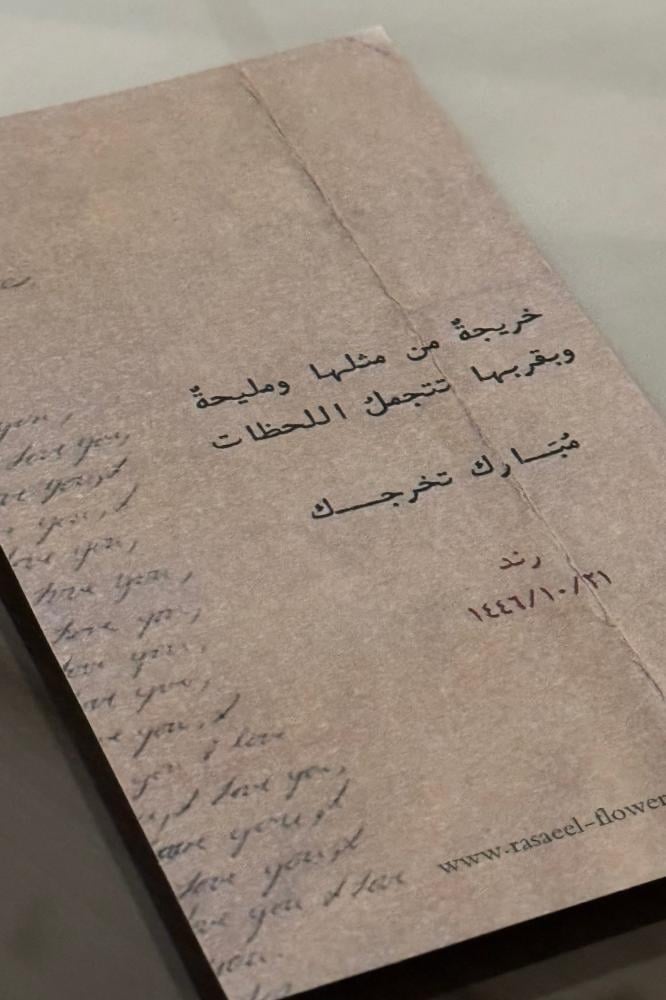 خريجةٌ من مثلها ومليحةٌ
وبقربها تتجملُ اللحظات
مُبَـــارك تخرجـــك
رند
١٤٤٦/١٠/٢١
you,
love you,
love you, I
you, I
love you,
love you,
love you,
love you,
love you,
you, I
you I love
I love you,
love you, I
love you, I
love you I love
you.
www.rasaeel-flower